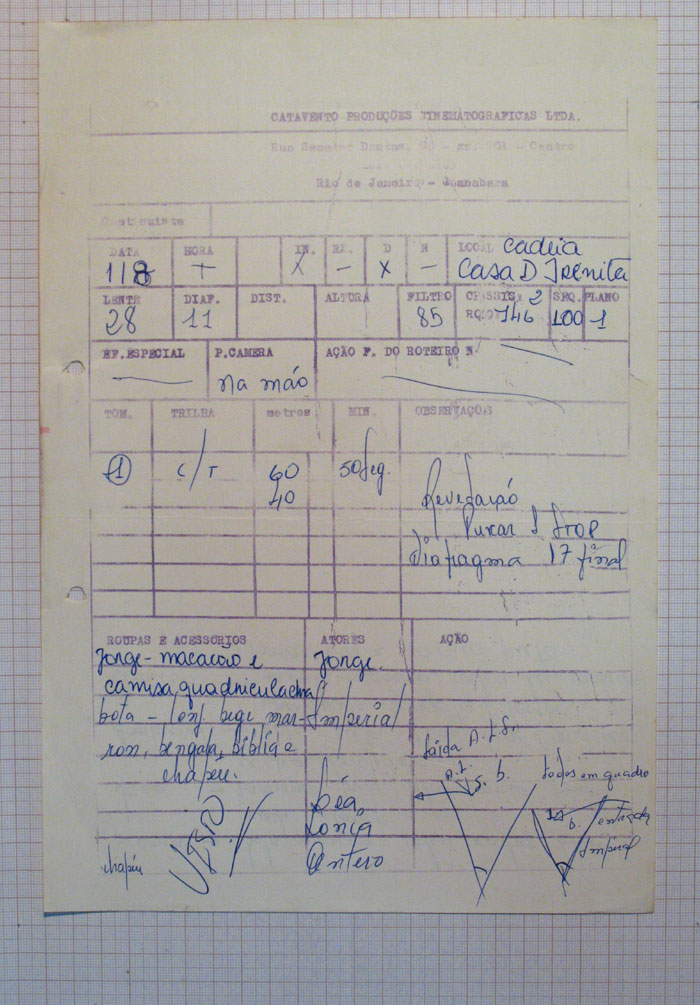 CATAVENTO PRODUÇÕES CINEMATOGRAFICAS LTDA.
Rua Senador Dantas, - Centro
Rio de Janeiro - Guanabara
Continuista
DATA HORA IN. EX. D N LOCAL cadeia
118 + X — X — Casa D Irenita
LENTE DIAF. DIST. ALTURA FILTRO CHASSIS, 2 SEQ. PLANO
28 11 85 ROLO 746 100 1
EF. ESPECIAL P. CAMERA AÇÃO P. DO ROTEIRO N.
— na mão
TOM. TRILHA metros MIN. OBSERVAÇÕES
1 C/T 60 50 Seg.
40
Revelação
Puxar 1 Stop
Diafragma 17 final
ROUPAS E ACESSÓRIOS ATORES AÇÃO
Jorge - macacão e Jorge.
camisa quadriculada
bota - Imperial
ron, bengala, bíblia e
chapéu.
Saída
S. b. todos em quadro
Léa,
Sonia b. entrada
Antero Imperial
chapéu
VISTO